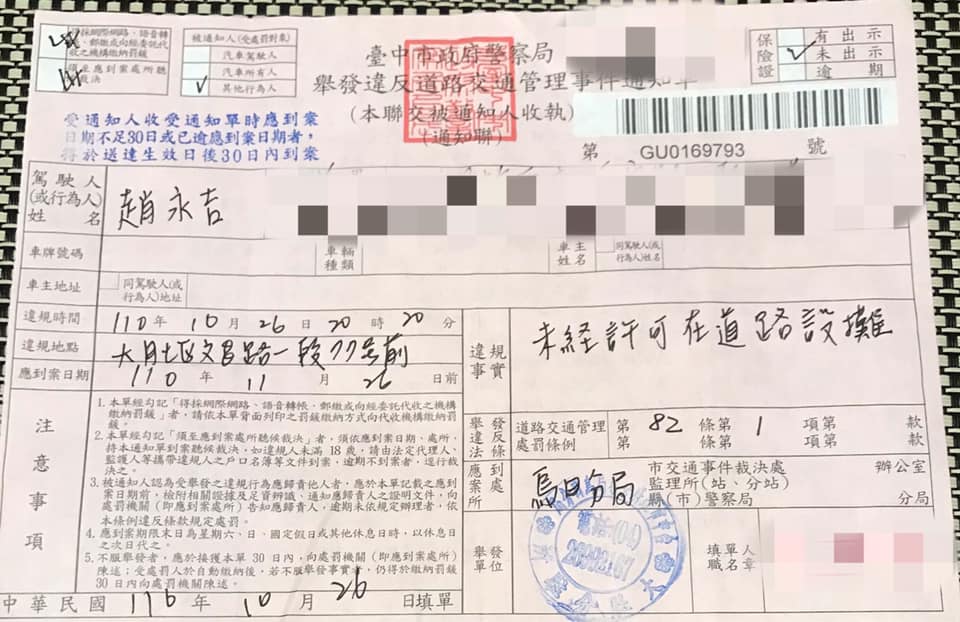 得採網際網路、語音轉帳、郵繳或向經委託代收之機構繳納罰鍰
須至應到案處所聽候裁決
被通知人(受處罰對象)
汽車駕駛人
汽車所有人
✓ 其他行為人
臺中市政府警察局
舉發違反道路交通管理事件通知單
(本聯交被通知人收執)
(通知聯)
保險證
有出示
✓ 未出示
逾期
受通知人收受通知單時應到案
日期不足30日或已逾應到案日期者,
將於送達生效日後30日內到案
第 GU0169793 號
駕駛人(或行為人)姓名 趙永吉
車牌號碼
車輛種類
車主姓名
同駕駛人(或行為人)姓名
車主地址
同駕駛人(或行為人)地址
違規時間 110年10月26日20時20分
違規地點 大肚區文昌路一段77号前
應到案日期 110年11月26日前
違規事實 未経許可在道路設攤
舉發違反法條 道路交通管理處罰條例 第82條第1項第 款
第 條第 項第 款
應到案處所 烏日分局
市交通事件裁決處 辦公室
監理所(站、分站)
縣(市)警察局 分局
注意事項
1.本單經勾記「得採網際網路、語音轉帳、郵繳或向經委託代收之機構
繳納罰鍰」者,請依本單背面列印之罰鍰繳納方式向代收機構繳納罰
鍰。
2.本單經勾記「須至應到案處所聽候裁決」者,須依應到案日期、處所,
持本通知單到案聽候裁決,如違規人未滿18歲,請由法定代理人、
監護人等攜帶違規人之戶口名簿等文件到案,逾期不到案者,逕行裁
決之。
3.被通知人認為受舉發之違規行為應歸責他人者,應於本單記載之應到
案日期前,檢附相關證據及足資辨識、通知應歸責人之證明文件,向
處罰機關(即應到案處所)告知應歸責人,逾期未依規定辦理者,依
本條例違反條款規定處罰。
4.應到案期限末日為星期六、日、國定假日或其他休息日時,以休息日
之次日代之。
5.不服舉發者,應於接獲本單30日內,向處罰機關(即應到案處所)
陳述;受處罰人於自動繳納後,若不服舉發事實者,仍得於繳納罰鍰
30日內向處罰機關陳述。
舉發單位
填單人職名章
中華民國110年10月26日填單